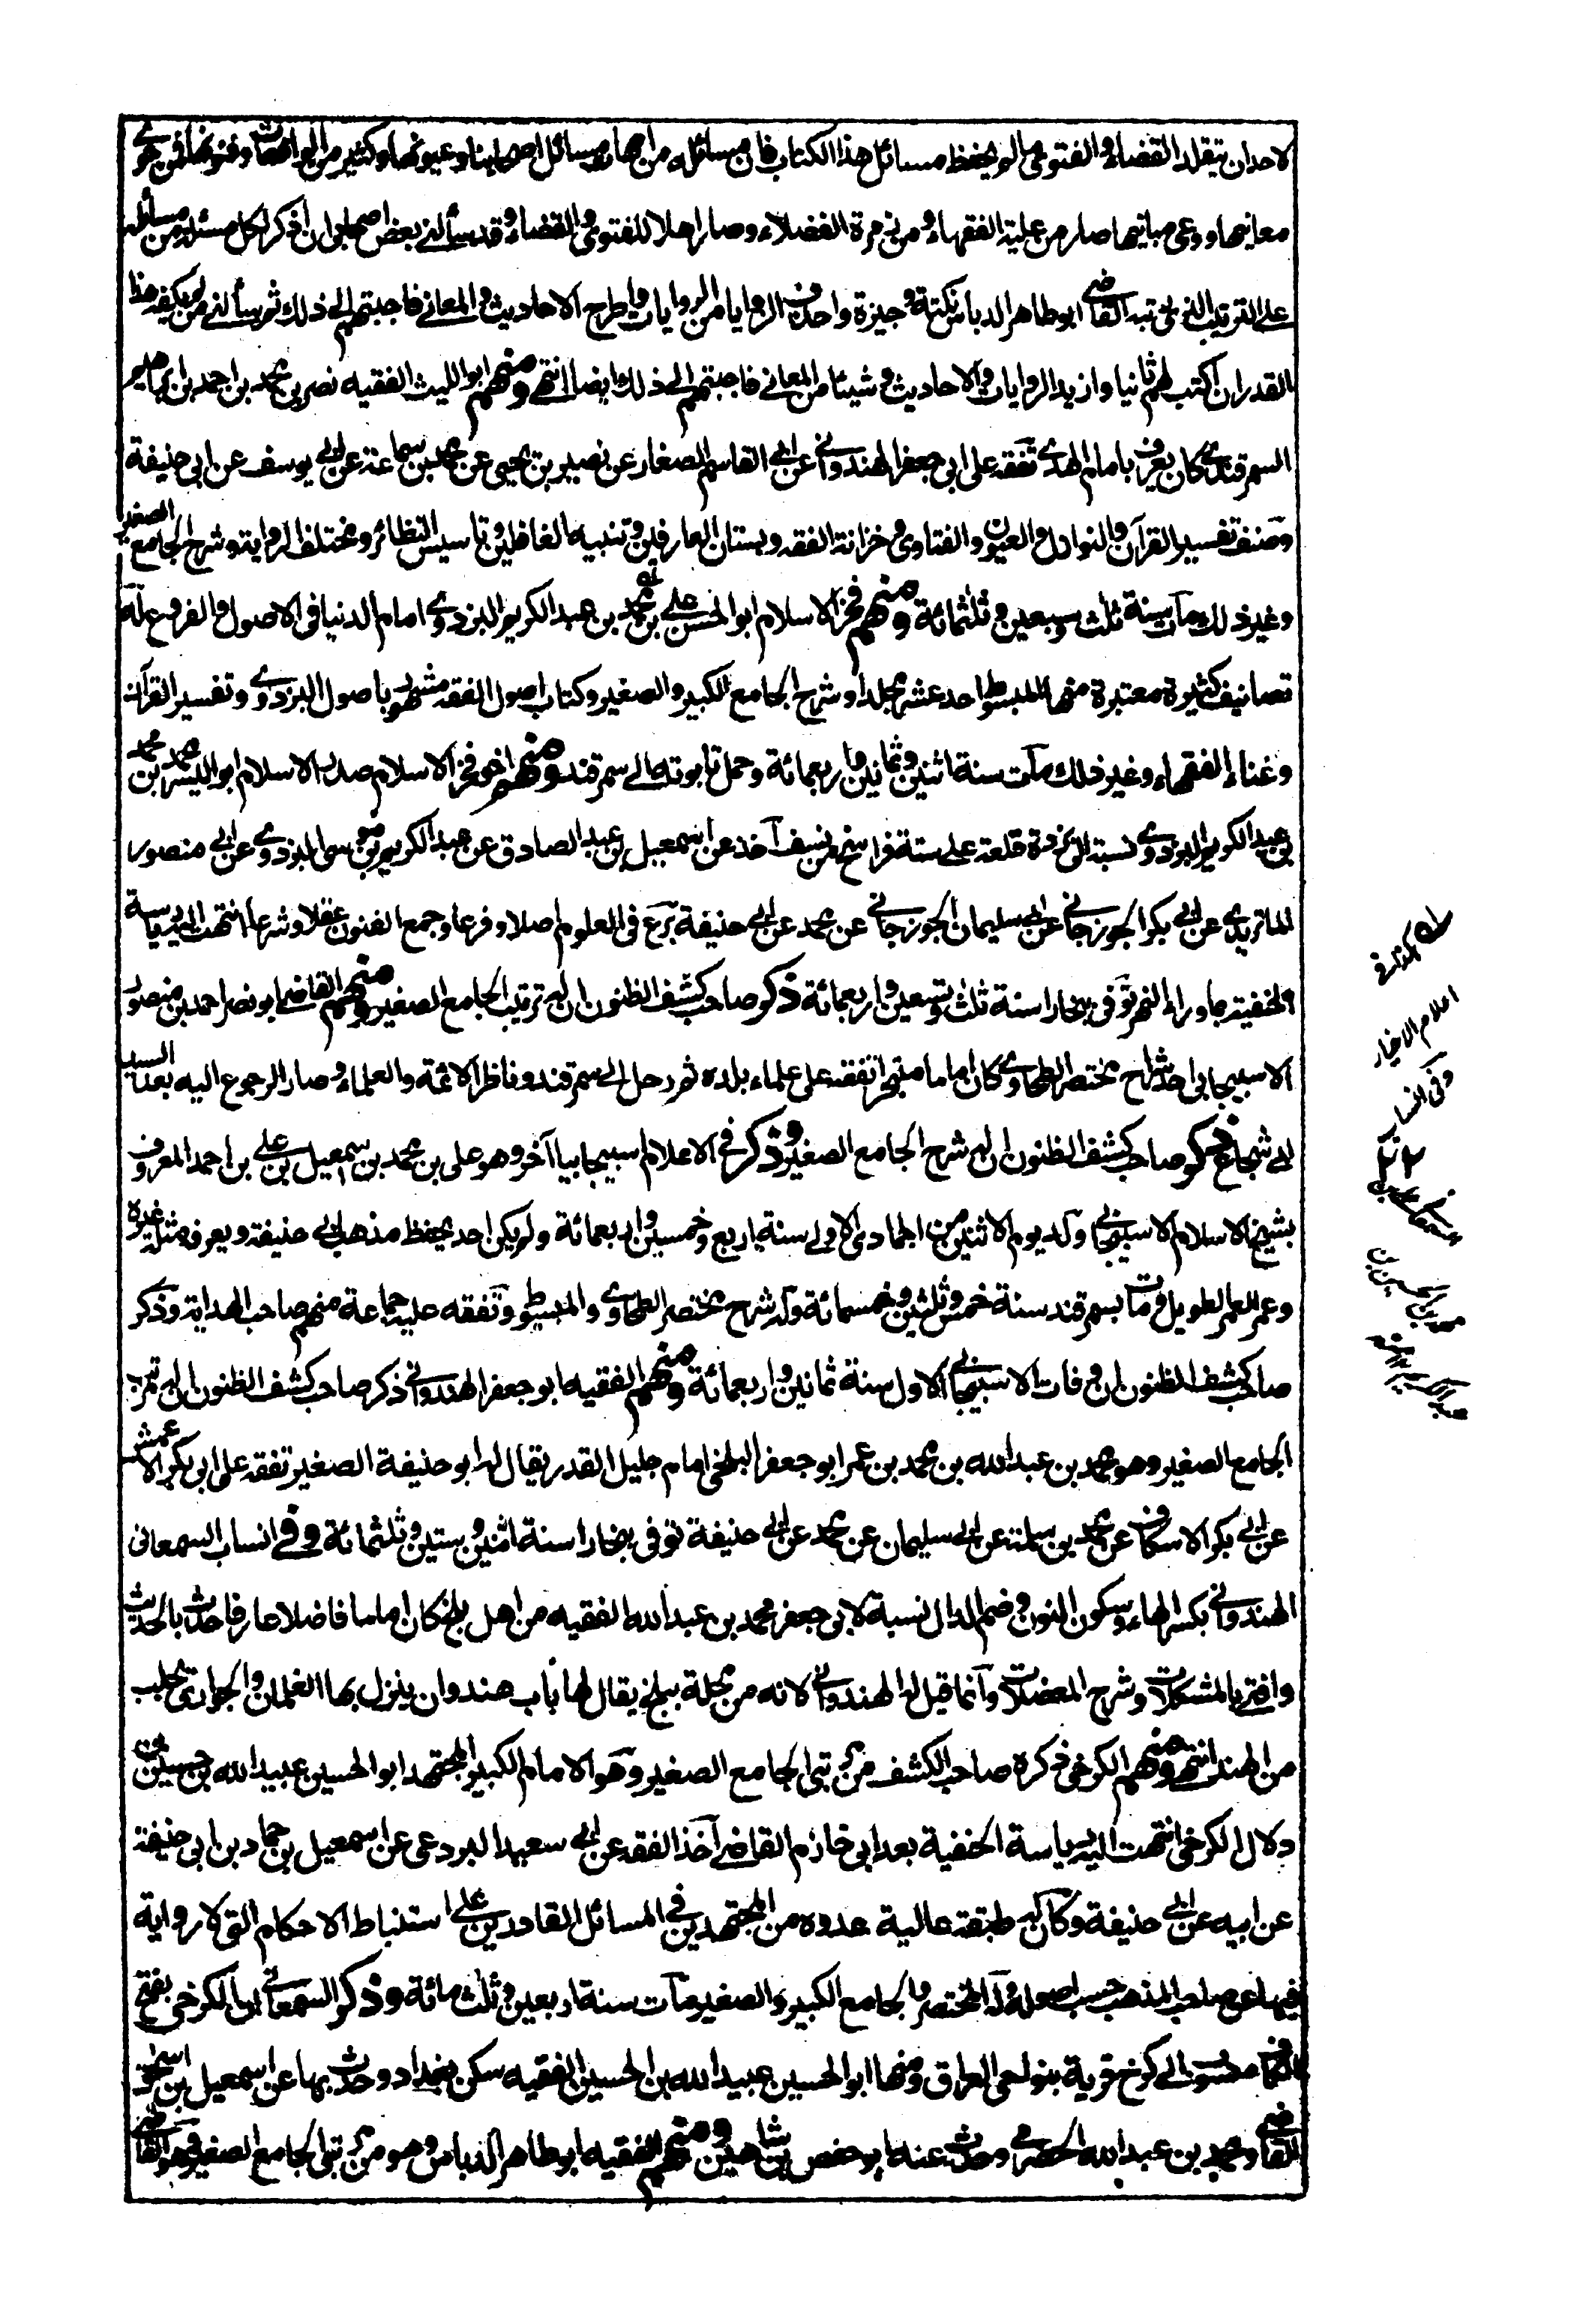 لاحد ان يتقلد القضاء والفتوى ما لم يحفظ مسائل هذا الكتاب فان مسائله من امهات مسائل اصحابنا وعيونها وكثير من الواقعات وفنونها فمن حوى
معانيها ووعى مبانيها صار من علية الفقهاء ومن زمرة الفضلاء وصار اهلا للفتوى والقضاء وقد سألني بعض اصحابي ان اذكر لكل مسئلة من مسائله
على الترتيب الذي رتبه القاضي ابو طاهر الدباس نكتة وجيزة واحذف الزوايا من الروايات واطرح الاحاديث والمعاني فاجبتهم الى ذلك ثم سألني من لم يكفه هذا
القدر ان اكتب لهم ثانيا وازيد الروايات والاحاديث وشيئا من المعاني فاجبتهم الى ذلك ايضا انتهى ومنهم ابو الليث الفقيه نصر بن محمد بن احمد بن ابراهيم
السمرقندي كان يعرف بامام الهدى تفقه على ابي جعفر الهندواني عن ابي القاسم الصفار عن نصير بن يحيى عن محمد بن سماعة عن ابي يوسف عن ابي حنيفة
وصنف تفسير القرآن والنوازل والعيون والفتاوى وخزانة الفقه وبستان العارفين وتنبيه الغافلين وتاسيس النظائر ومختلف الرواية وشرح الجامع الصغير
وغير ذلك مات سنة ثلث وسبعين وثلثمائة ومنهم فخر الاسلام ابو الحسن علي بن محمد بن عبد الكريم البزدوي امام الدنيا في الاصول والفروع له
تصانيف كثيرة معتبرة منها المبسوط احد عشر مجلدا وشرح الجامع الكبير والصغير وكتاب اصول الفقه مشهور باصول البزدوي وتفسير القرآن
وغناء الفقهاء وغير ذلك مات سنة اثنين وثمانين واربعمائة وحمل تابوته الى سمرقند ومنهم اخو فخر الاسلام صدر الاسلام ابو اليسر محمد بن محمد
بن عبد الكريم البزدوي نسبة الى بزدة قلعة على ستة فراسخ من نسف اخذ عن اسمعيل بن عبد الصادق عن عبد الكريم بن موسى البزدوي عن ابي منصور
الماتريدي عن ابي بكر الجوزجاني عن ابي سليمان الجوزجاني عن محمد عن ابي حنيفة برع في العلوم اصلا وفرعا وجمع الفنون عقلا وشرعا انتهت اليه رياسة
الحنفية بما وراء النهر توفي ببخارا سنة ثلث وتسعين واربعمائة ذكر صاحب كشف الظنون ان له ترتيب الجامع الصغير ومنهم القاضي ابو نصر احمد بن منصور
الاسبيجابي احد شراح مختصر الطحاوي كان اماما متبحرا تفقه على علماء بلده ثم رحل الى سمرقند وناظر الائمة والعلماء وصار الرجوع اليه بعد السيد
ابي شجاع ذكر صاحب كشف الظنون ان له شرح الجامع الصغير وذكر في الاعلام اسبيجابيا آخر وهو علي بن محمد بن اسمعيل بن علي بن احمد المعروف
بشيخ الاسلام الاسبيجابي ولد يوم الاثنين من الجمادى الاولى سنة اربع وخمسين واربعمائة ولم يكن احد يحفظ مذهب ابي حنيفة ويعرفه مثله غيره
وعمر العمر الطويل ومات بسمرقند سنة خمس وثلثين وخمسمائة وله شرح مختصر الطحاوي والمبسوط وتفقه عليه جماعة منهم صاحب الهداية وذكر
صاحب كشف الظنون ان وفات الاسبيجابي الاول سنة ثمانين واربعمائة ومنهم الفقيه ابو جعفر الهندواني ذكر صاحب كشف الظنون ان له ترتيب
الجامع الصغير وهو محمد بن عبد الله بن محمد بن عمر ابو جعفر البلخي امام جليل القدر يقال له ابو حنيفة الصغير تفقه على ابي بكر الاعمش
عن ابي بكر الاسكاف عن محمد بن سلمة عن ابي سليمان عن محمد عن ابي حنيفة توفي ببخارا سنة اثنين وستين وثلثمائة وفي انساب السمعاني
الهندواني بكسر الهاء وسكون النون وضم الدال نسبة لابي جعفر محمد بن عبد الله الفقيه من اهل بلخ كان اماما فاضلا عارفا حدث بالحديث
وافتى بالمشكلات وشرح المعضلات وانما قيل له الهندواني لانه من محلة ببلخ يقال لها باب هندوان ينزل بها الغلمان والجواري تجلب
من الهند انتهى ومنهم الكرخي ذكره صاحب الكشف من مرتبي الجامع الصغير وهو الامام الكبير المجتهد ابو الحسين عبيد الله بن حسين بن
دلال الكرخي انتهت اليه رياسة الحنفية بعد ابي خازم القاضي اخذ الفقه عن ابي سعيد البردعي عن اسمعيل بن حماد بن ابي حنيفة
عن ابيه عن ابي حنيفة وكان له طبقة عالية عدوه من المجتهدين في المسائل القادرين على استنباط الاحكام التي لا رواية
فيها عن صاحب المذهب حسب اصوله وله المختصر والجامع الكبير والصغير مات سنة اربعين وثلث مائة وذكر السمعاني ان الكرخي بفتح
الكاف منسوب الى كرخ قرية بنواحي العراق ومنها ابو الحسين عبيد الله بن الحسين الفقيه سكن بغداد وحدث بها عن اسمعيل بن اسحق
القاضي ومحمد بن عبد الله الحضرمي وحدث عنه ابو حفص بن شاهين ومنهم الفقيه ابو طاهر الدباس وهو من مرتبي الجامع الصغير وهو القاضي
اعلام الاخيار
وفي انساب